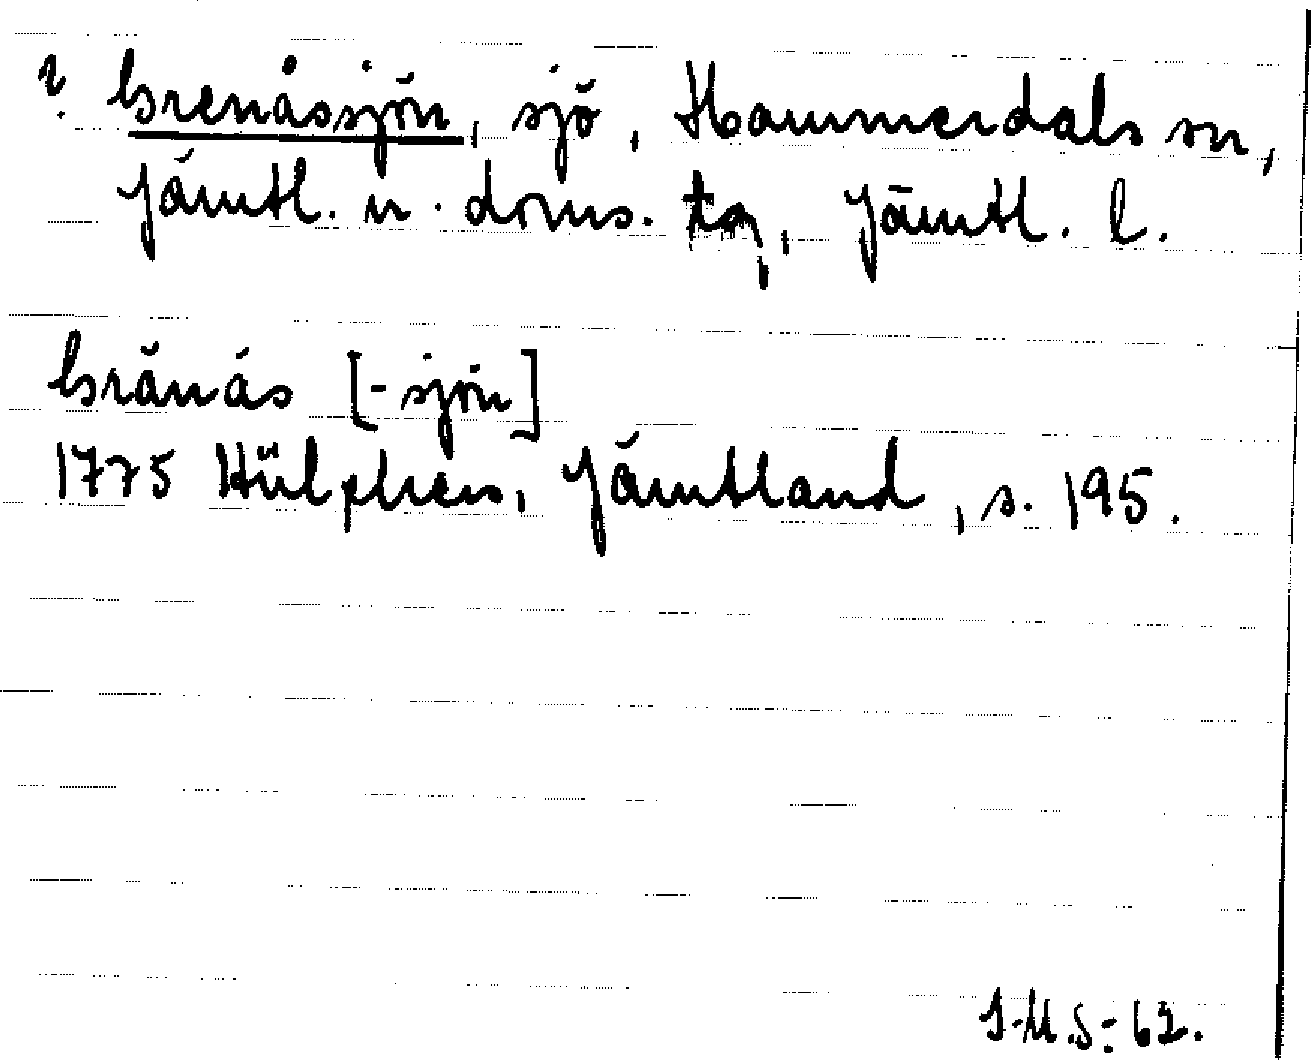 ? Grenåssjön, sjö, Hammerdals sn,
Jämtl. n. doms. tg, Jämtl. l.
Gränäs [-sjön]
1775 Hülphers, Jämtland, s. 195.
I.M.S. 62.